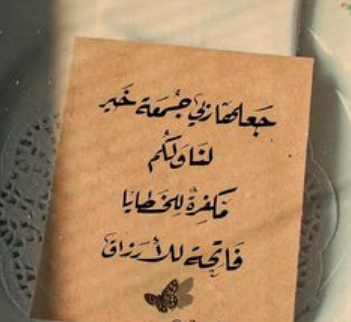 جَعلها ربي جُمعَة خَير
لنَا وَلكُم
مَكفِرةٌ لِلخَطايَا
فَاتِحَة للأَرزاق